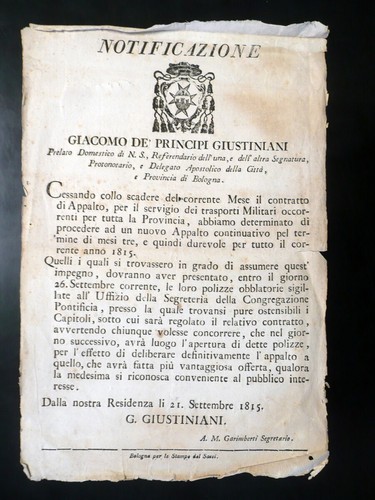 NOTIFICAZIONE
GIACOMO DE' PRINCIPI GIUSTINIANI
Prelato Domestico di N. S., Referendario dell'una, e dell'altra Segnatura,
Protonotario, e Delegato Apostolico della Città,
e Provincia di Bologna.
Cessando collo scadere del corrente Mese il contratto
di Appalto, per il servigio dei trasporti Militari occor-
renti per tutta la Provincia, abbiamo determinato di
procedere ad un nuovo Appalto continuativo pel ter-
mine di mesi tre, e quindi durevole per tutto il cor-
rente anno 1815.
Quelli i quali si trovassero in grado di assumere quest'
impegno, dovranno aver presentato, entro il giorno
26. Settembre corrente, le loro polizze obblatorie sigil-
late all' Uffizio della Segreteria della Congregazione
Pontificia, presso la quale trovansi pure ostensibili i
Capitoli, sotto cui sarà regolato il relativo contratto,
avvertendo chiunque volesse concorrere, che nel gior-
no successivo, avrà luogo l'apertura di dette polizze,
per l'effetto di deliberare definitivamente l'appalto a
quello, che avrà fatta più vantaggiosa offerta, qualora
la medesima si riconosca conveniente al pubblico inte-
resse.
Dalla nostra Residenza li 21. Settembre 1815.
G. GIUSTINIANI.
A. M. Garimberti Segretario.
Bologna per le Stampe del Sassi.